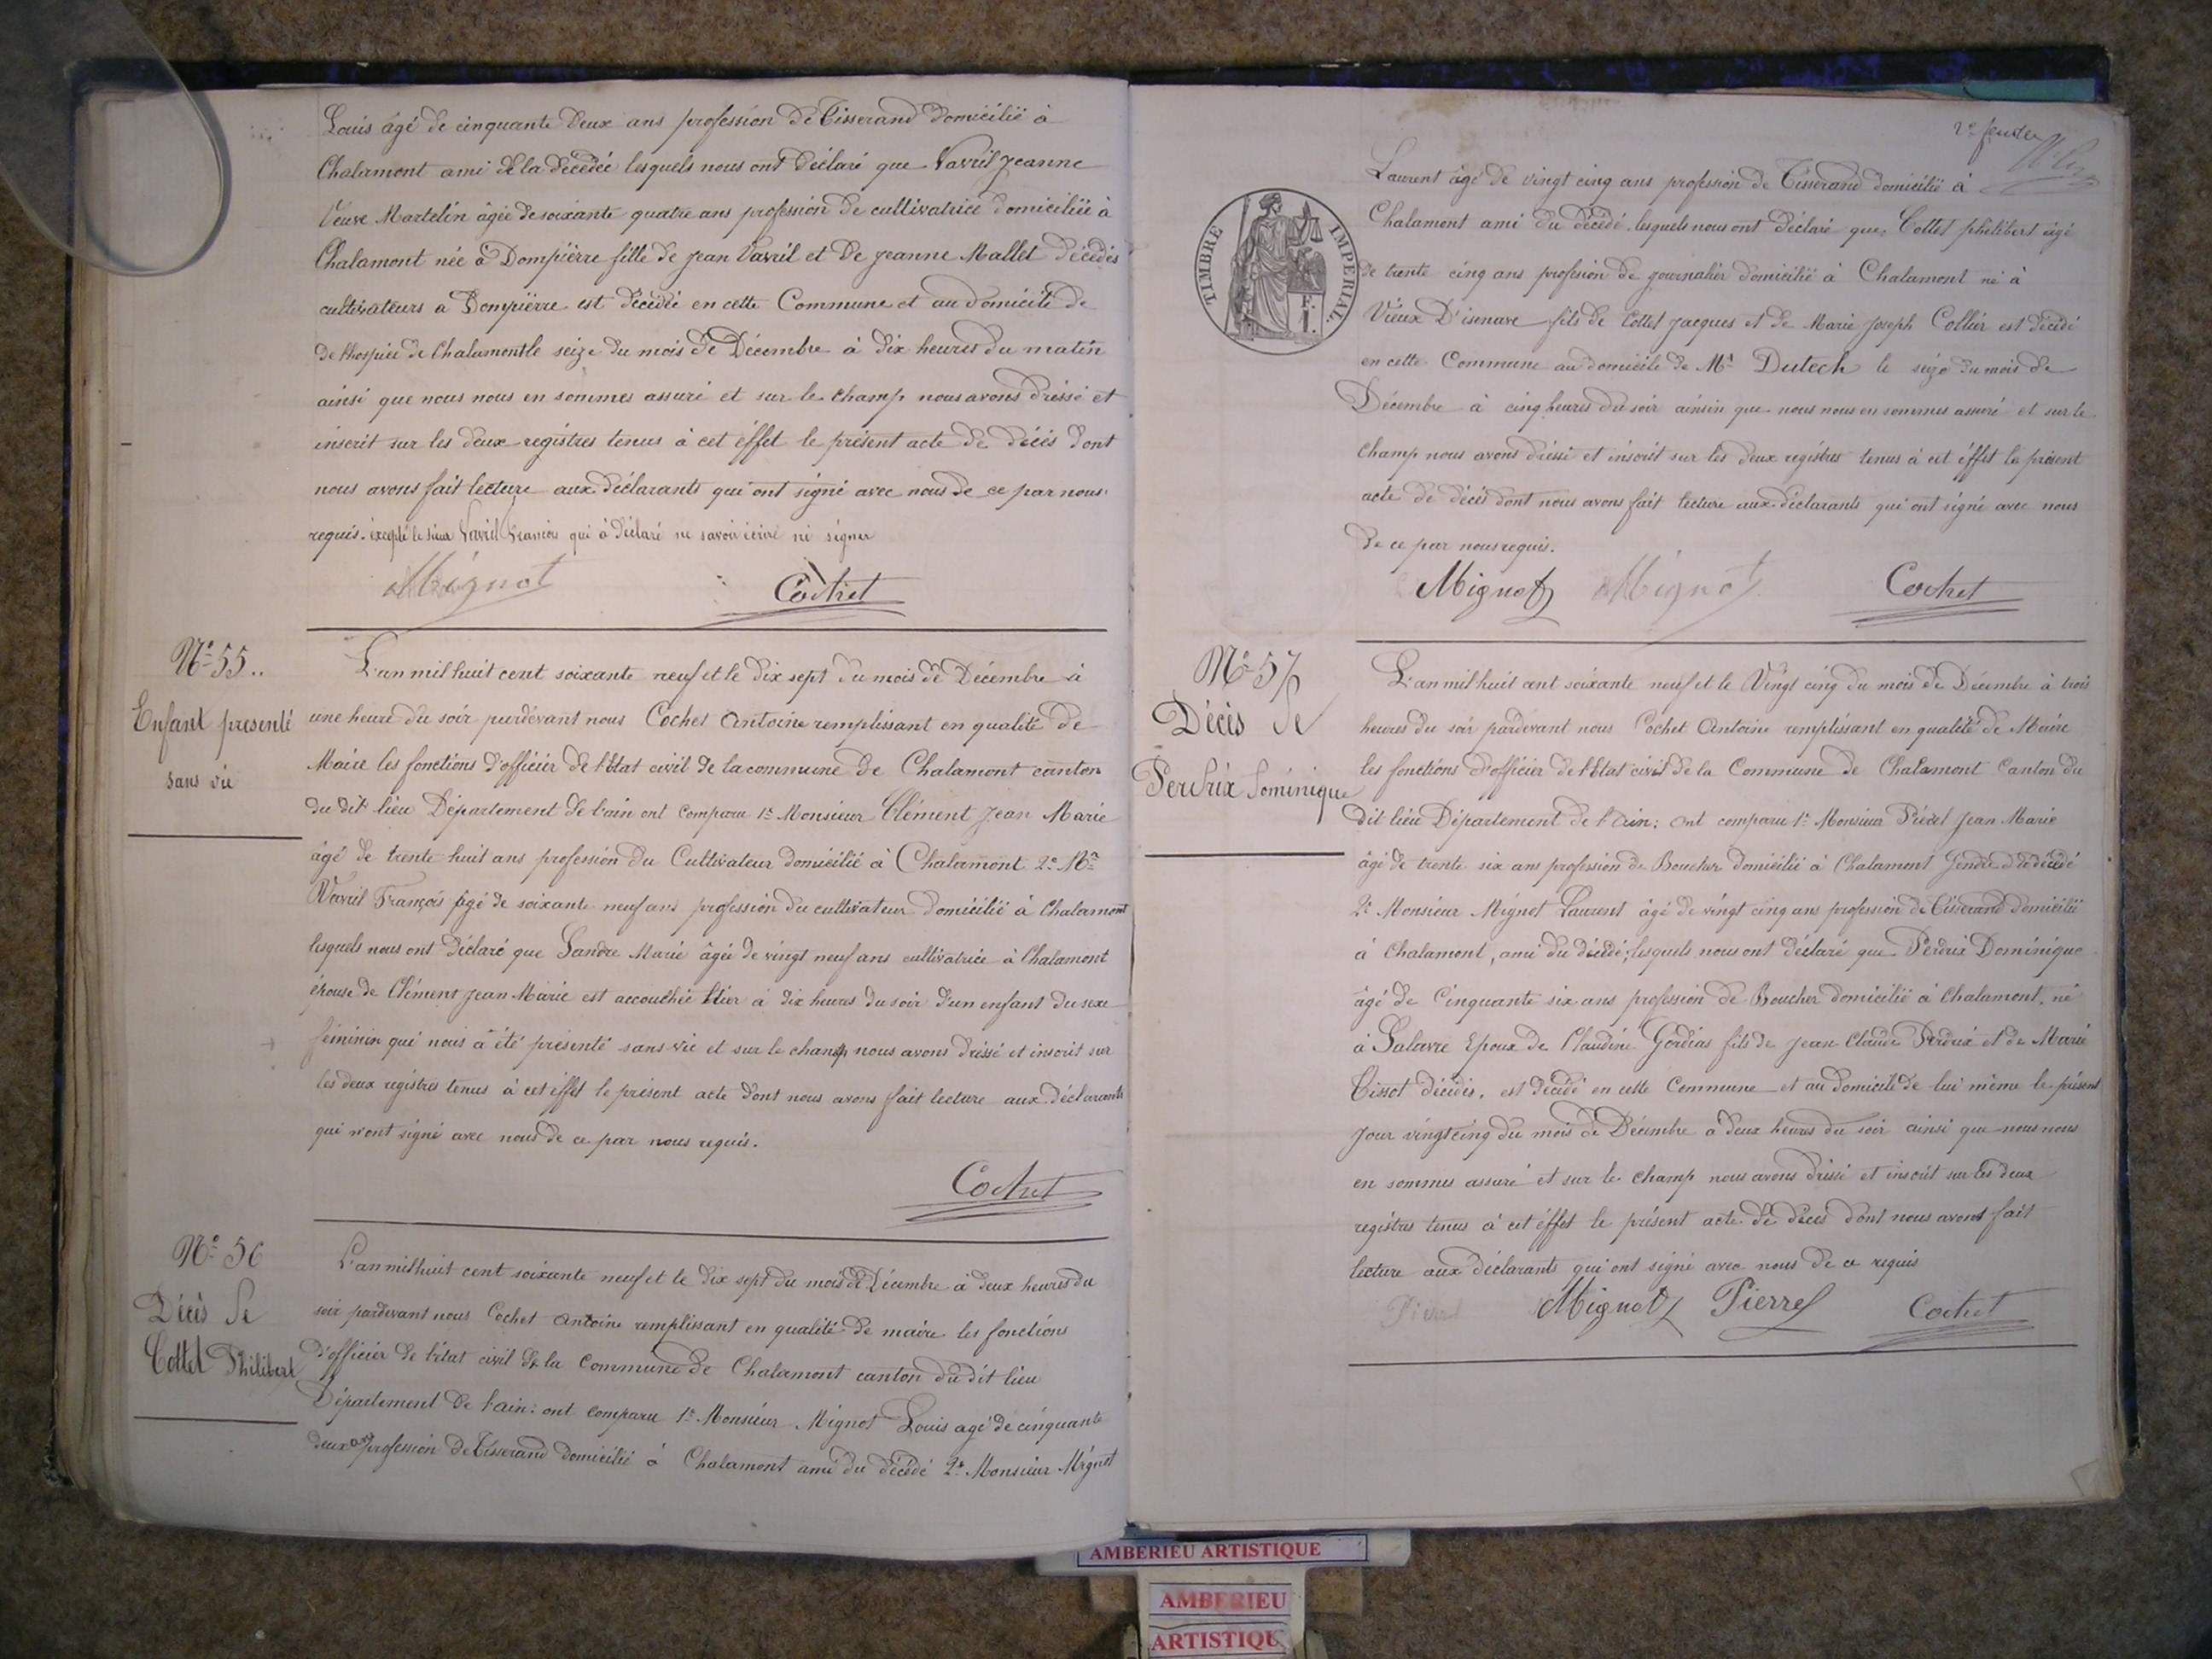 Louis âgé de cinquante deux ans profession de Tisserand domicilié à
Chalamont ami de la décédée lesquels nous ont déclaré que Vavril Jeanne
Veuve Martelin âgée de soixante quatre ans profession de cultivatrice domiciliée à
Chalamont née à Dompierre fille de Jean Vavril et de Jeanne Mallet décédés
cultivateurs a Dompierre est décédé en cette Commune et au domicile de
de l'hospice de Chalamont le seize du mois de Décembre à dix heures du matin
ainsi que nous nous en sommes assuré et sur le champ nous avons dréssé et
inscrit sur les deux registres tenus à cet éffet le présent acte de décès dont
nous avons fait lecture aux déclarants qui ont signé avec nous de ce par nous
requis. excepté le sieur Vavril François qui à déclaré ne savoir écrire ni signer
Mignot Cochet
N° 55..
Enfant presenté
sans vie
L'an mil huit cent soixante neuf et le dix sept du mois de Décembre à
une heure du soir pardevant nous Cochet Antoine remplissant en qualité de
Maire les fonctions d'officier de l'Etat civil de la commune de Chalamont canton
du dit lieu Département de l'ain ont comparu 1° Monsieur Clément Jean Marie
âgé de trente huit ans profession du Cultivateur domicilié à Chalamont 2° Mr
Vavril François âgé de soixante neuf ans profession du cultivateur domicilié à Chalamont
lesquels nous ont déclaré que Sandre Marie âgée de vingt neuf ans cultivatrice à Chalamont
épouse de Clément Jean Marie est accouchée hier à dix heures du soir d'un enfant du sexe
féminin qui nous à été présenté sans vie et sur le champ nous avons dréssé et inscrit sur
les deux registres tenus à cet éffet le présent acte dont nous avons fait lecture aux déclarants
qui n'ont signé avec nous de ce par nous requis.
Cochet
N° 56
Décès de
Cottet Philibert
L'an mil huit cent soixante neuf et le dix sept du mois de Décembre à deux heures du
soir pardevant nous Cochet Antoine remplissant en qualité de maire les fonctions
d'officier de l'état civil de la Commune de Chalamont canton du dit lieu
Département de l'ain: ont comparu 1° Monsieur Mignot Louis agé de cinquante
deux ans profession de Tisserand domicilié à Chalamont ami du décédé 2° Monsieur Mignot
TIMBRE IMPERIAL
Laurent âgé de vingt cinq ans profession de Tisserand domicilié à
Chalamont ami du décédé. lesquels nous ont déclaré que: Cottet philibert âgé
de trente cinq ans profession de journalier domicilié à Chalamont né à
Vieux D'isenave fils de Cottet Jacques et de Marie Joseph Collier est décédé
en cette Commune au domicile de Mr Dutech le seize du mois de
Décembre à cinq heures du soir ainsin que nous nous en sommes assuré et sur le
champ nous avons dréssé et inscrit sur les deux registres tenus à cet éffet le présent
acte de décès dont nous avons fait lecture aux déclarants qui ont signé avec nous
de ce par nous requis.
Mignot Mignot Cochet
N° 57
Décès de
Perdrix Dominique
L'an mil huit cent soixante neuf et le Vingt cinq du mois de Décembre à trois
heures du soir pardevant nous Cochet Antoine remplissant en qualité de Maire
les fonctions d'officier de l'Etat civil de la Commune de Chalamont Canton du
dit lieu Département de l'Ain: ont comparu 1° Monsieur Pierel Jean Marie
âgé de trente six ans profession de Boucher domicilié à Chalamont Gendre du décédé
2° Monsieur Mignot Laurent âgé de vingt cinq ans profession de Tisserand domicilié
à Chalamont, ami du décédé; lesquels nous ont déclaré que Perdrix Dominique
âgé de Cinquante six ans profession de Boucher domicilié à Chalamont, né
à Salavre Epoux de Claudine Gordias fils de Jean Claude Perdrix et de Marie
Tissot décédés, est décédé en cette Commune et au domicile de lui même le présent
Jour vingt cinq du mois de Décembre à deux heures du soir ainsi que nous nous
en sommes assuré et sur le champ nous avons dréssé et inscrit sur les deux
registres tenus à cet éffet le présent acte de décès dont nous avons fait
lecture aux déclarants qui ont signé avec nous de ce requis
Mignot Pierrel Cochet
AMBERIEU ARTISTIQUE
AMBERIEU
ARTISTIQU